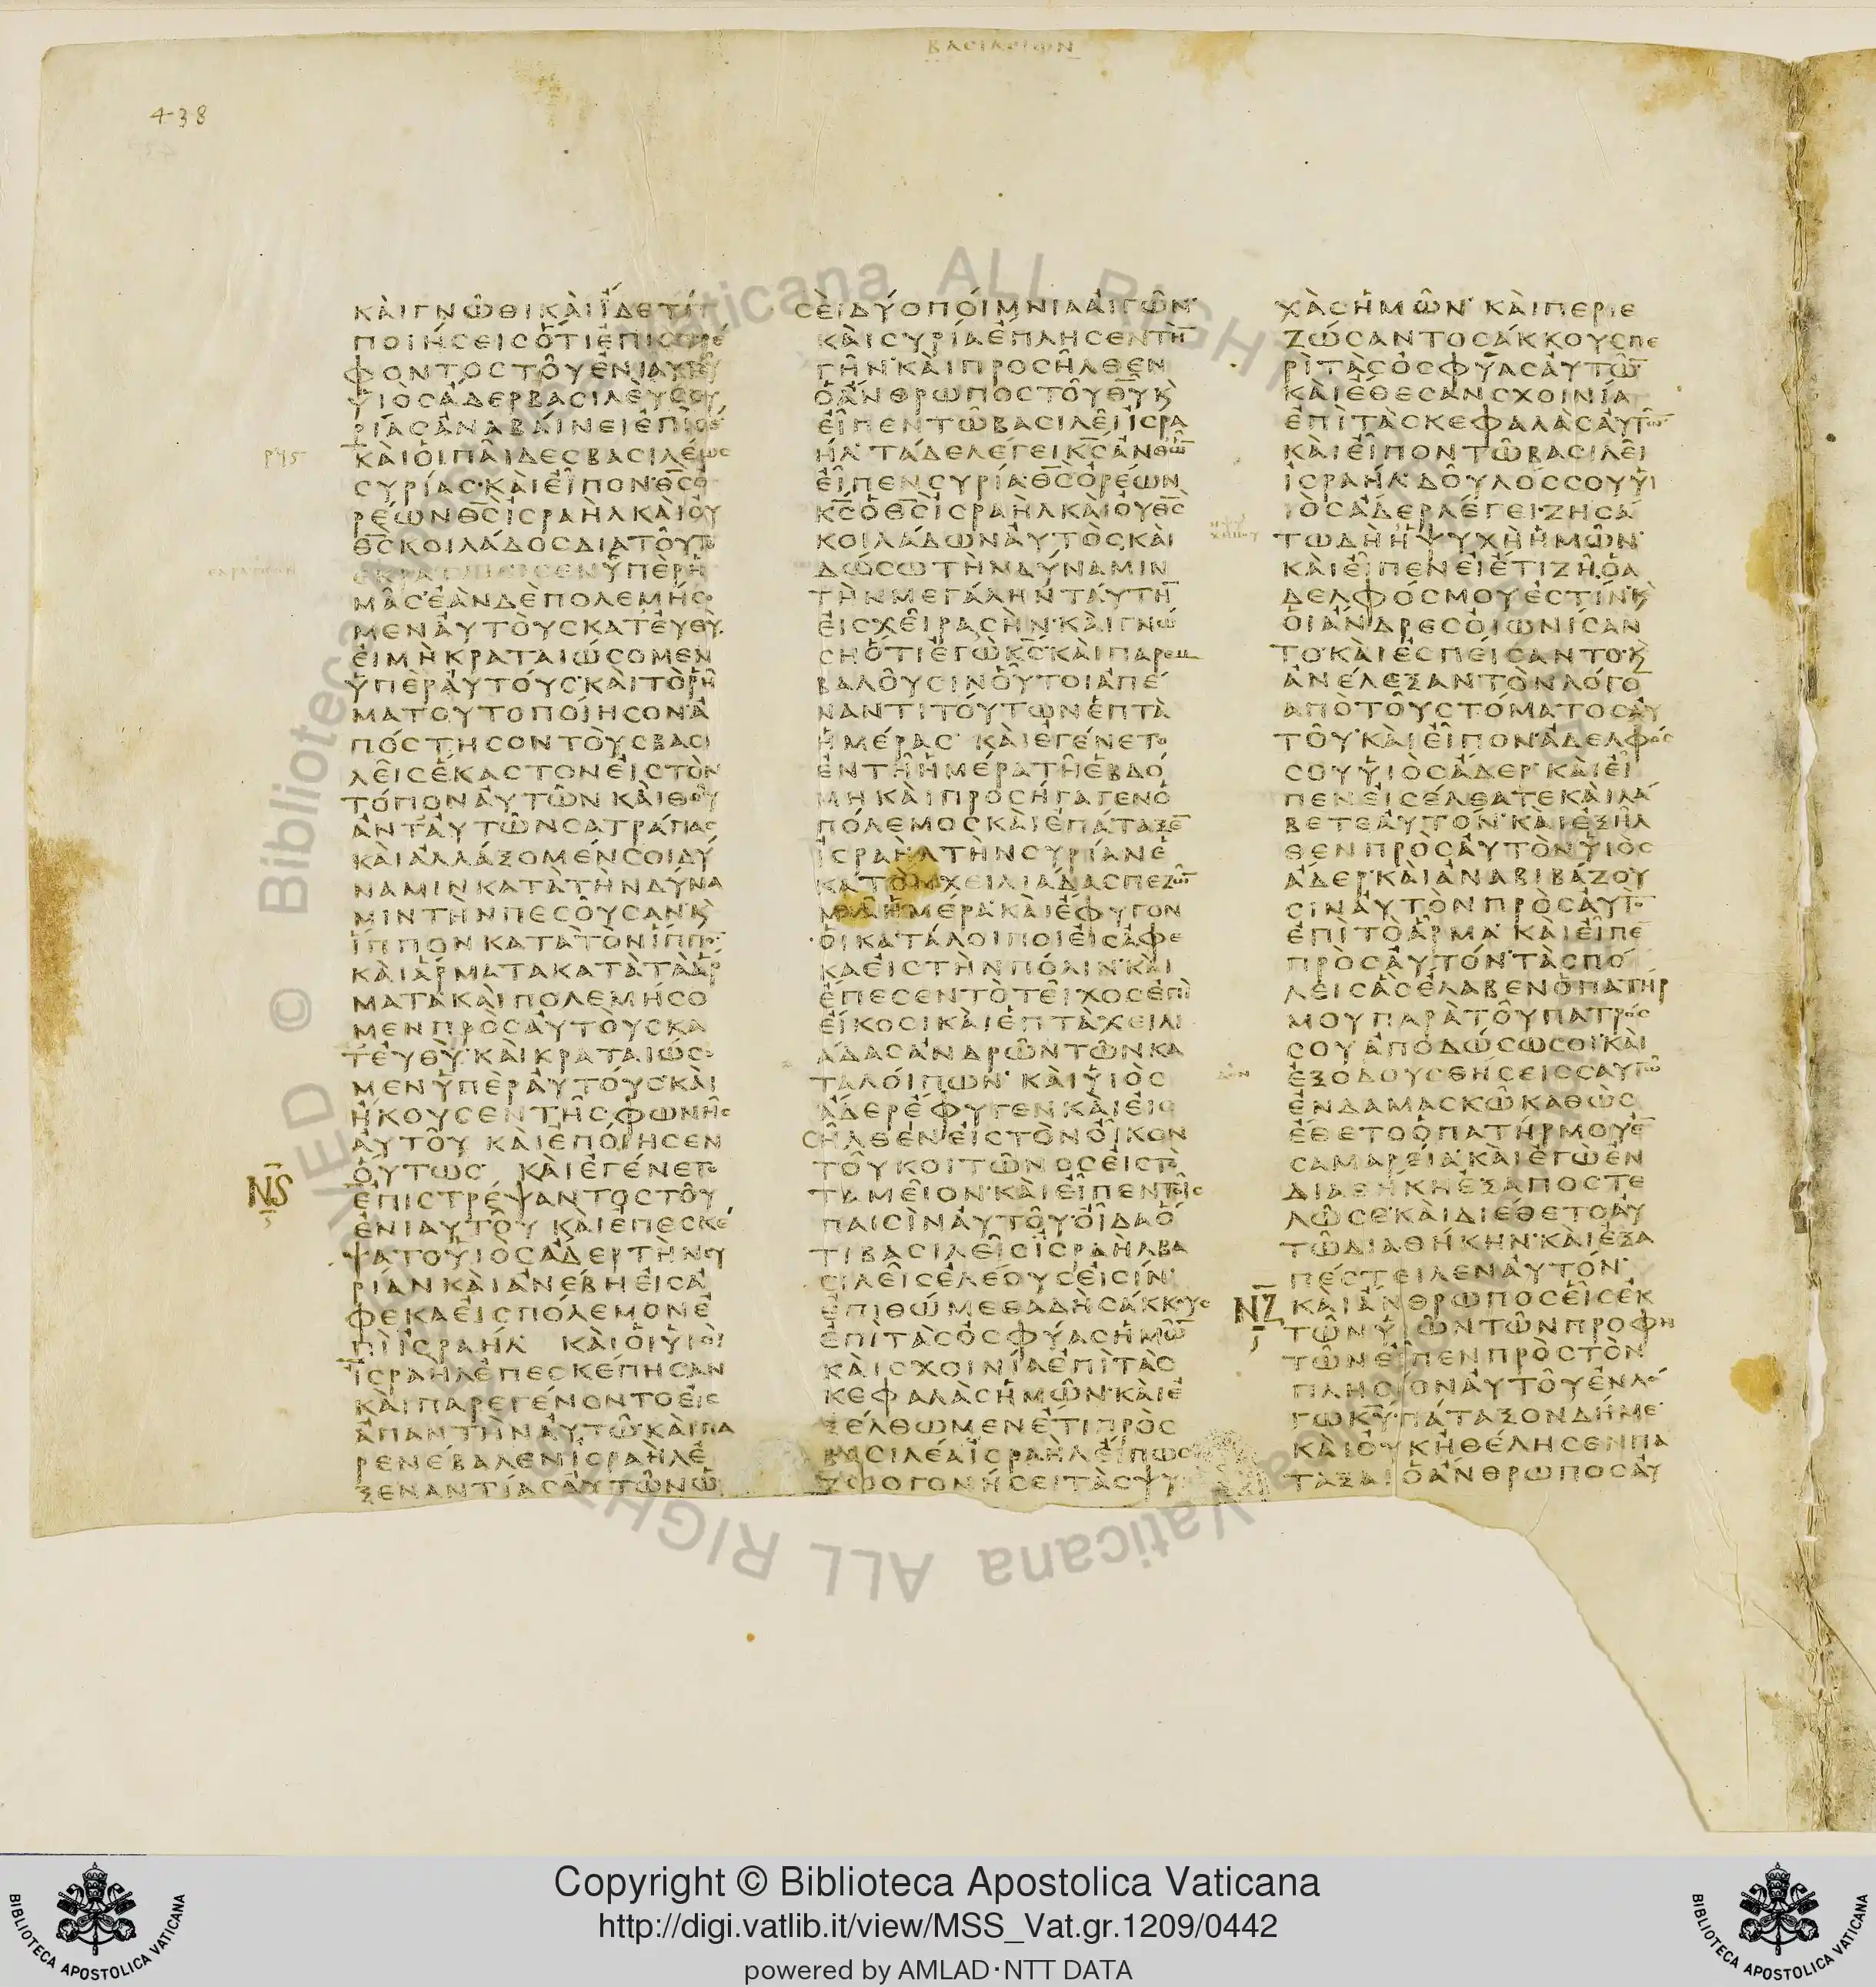 ΒΑΣΙΛΕΙΩΝ
438
ΚΑΙΓΝΩΘΙΚΑΙΪΔΕΤΙ
ΠΟΙΗΣΕΙΣΟΤΙΕΠΙΣΤΡΕ
ΦΟΝΤΟΣΤΟΥΕΝΙΑΥΤΟΥ
ΥΙΟΣΑΔΕΡΒΑΣΙΛΕΥΣΣΥ
ΡΙΑΣΑΝΑΒΑΙΝΕΙΕΠΙΣΕ
ΚΑΙΟΙΠΑΙΔΕΣΒΑΣΙΛΕΩΣ
ΣΥΡΙΑΣ·ΚΑΙΕΙΠΟΝ·Θ̅Σ̅Ο
ΡΕΩΝΘ̅Σ̅ΙΣΡΑΗΛΚΑΙΟΥ
Θ̅Σ̅ΚΟΙΛΑΔΟΣΔΙΑΤΟΥΤΟ
ΕΚΡΑΤΑΙΩΣΕΝΥΠΕΡΗ
ΜΑΣ·ΕΑΝΔΕΠΟΛΕΜΗΣΟ
ΜΕΝΑΥΤΟΥΣΚΑΤΕΥΘΥ·
ΕΙΜΗΚΡΑΤΑΙΩΣΟΜΕΝ
ΥΠΕΡΑΥΤΟΥΣ·ΚΑΙΤΟΡΗ
ΜΑΤΟΥΤΟΠΟΙΗΣΟΝ·Α
ΠΟΣΤΗΣΟΝΤΟΥΣΒΑΣΙ
ΛΕΙΣΕΚΑΣΤΟΝΕΙΣΤΟΝ
ΤΟΠΟΝΑΥΤΩΝΚΑΙΘΟΥ
ΑΝΤΑΥΤΩΝΣΑΤΡΑΠΑΣ
ΚΑΙΑΛΛΑΞΟΜΕΝΣΟΙΔΥ
ΝΑΜΙΝΚΑΤΑΤΗΝΔΥΝΑ
ΜΙΝΤΗΝΠΕΣΟΥΣΑΝ·Κ̀
ΪΠΠΟΝΚΑΤΑΤΟΝΪΠΠΟΝ
ΚΑΙΑΡΜΑΤΑΚΑΤΑΤΑΑΡ
ΜΑΤΑΚΑΙΠΟΛΕΜΗΣΟ
ΜΕΝΠΡΟΣΑΥΤΟΥΣΚΑ
ΤΕΥΘΥ·ΚΑΙΚΡΑΤΑΙΩΣΟ
ΜΕΝΥΠΕΡΑΥΤΟΥΣ·ΚΑΙ
ΗΚΟΥΣΕΝΤΗΣΦΩΝΗΣ
ΑΥΤΟΥΚΑΙΕΠΟΙΗΣΕΝ
ΟΥΤΩΣ· ΚΑΙΕΓΕΝΕΤΟ
ΝϚ
ΕΠΙΣΤΡΕΨΑΝΤΟΣΤΟΥ
ΕΝΙΑΥΤΟΥΚΑΙΕΠΕΣΚΕ
ΨΑΤΟΥΙΟΣΑΔΕΡΤΗΝΣΥ
ΡΙΑΝΚΑΙΑΝΕΒΗΕΙΣΑ
ΦΕΚΑΕΙΣΠΟΛΕΜΟΝΕ
ΠΙΙΣΡΑΗΛ· ΚΑΙΟΙΥΙΟΙ
ΪΣΡΑΗΛΕΠΕΣΚΕΠΗΣΑΝ
ΚΑΙΠΑΡΕΓΕΝΟΝΤΟΕΙΣ
ΑΠΑΝΤΗΝΑΥΤΩ·ΚΑΙΠΑ
ΡΕΝΕΒΑΛΕΝΙΣΡΑΗΛΕ
ΞΕΝΑΝΤΙΑΣΑΥΤΩΝΩ
ΣΕΙΔΥΟΠΟΙΜΝΙΑΑΙΓΩΝ·
ΚΑΙΣΥΡΙΑΕΠΛΗΣΕΝΤΗ̅
ΓΗΝ·ΚΑΙΠΡΟΣΗΛΘΕΝ
ΟΑΝΘΡΩΠΟΣΤΟΥΘ̅Υ̅Κ̀
ΕΙΠΕΝΤΩΒΑΣΙΛΕΙΙΣΡΑ
ΗΛ·ΤΑΔΕΛΕΓΕΙΚ̅Σ̅ΑΝΘΩ̅
ΕΙΠΕΝΣΥΡΙΑ·Θ̅Σ̅ΟΡΕΩΝ
Κ̅Σ̅ΟΘ̅Σ̅ΙΣΡΑΗΛΚΑΙΟΥΘ̅Σ̅
ΚΟΙΛΑΔΩΝΑΥΤΟΣ·ΚΑΙ
ΔΩΣΩΤΗΝΔΥΝΑΜΙΝ
ΤΗΝΜΕΓΑΛΗΝΤΑΥΤΗ̅
ΕΙΣΧΕΙΡΑΣΗΝ·ΚΑΙΓΝΩ
ΣΗΟΤΙΕΓΩΚ̅Σ̅·ΚΑΙΠΑΡΕΜ
ΒΑΛΟΥΣΙΝΟΥΤΟΙΑΠΕ
ΝΑΝΤΙΤΟΥΤΩΝΕΠΤΑ
ΗΜΕΡΑΣ· ΚΑΙΕΓΕΝΕΤΟ
ΕΝΤΗΗΜΕΡΑΤΗΕΒΔΟ
ΜΗΚΑΙΠΡΟΣΗΓΑΓΕΝΟ
ΠΟΛΕΜΟΣΚΑΙΕΠΑΤΑΞΕ̅
ΙΣΡΑΗΛΤΗΝΣΥΡΙΑΝΕ
ΚΑΤΟΝΧΕΙΛΙΑΔΑΣΠΕΖΩ̅
ΜΙΑΗΜΕΡΑ·ΚΑΙΕΦΥΓΟΝ
ΟΙΚΑΤΑΛΟΙΠΟΙΕΙΣΑΦΕ
ΚΑΕΙΣΤΗΝΠΟΛΙΝ·ΚΑΙ
ΕΠΕΣΕΝΤΟΤΕΙΧΟΣΕΠΙ
ΕΙΚΟΣΙΚΑΙΕΠΤΑΧΕΙΛΙ
ΑΔΑΣΑΝΔΡΩΝΤΩΝΚΑ
ΤΑΛΟΙΠΩΝ· ΚΑΙΥΙΟΣ
ΑΔΕΡΕΦΥΓΕΝΚΑΙΕΙΣ
ΗΛΘΕΝΕΙΣΤΟΝΟΙΚΟΝ
ΤΟΥΚΟΙΤΩΝΟΣΕΙΣΤΟ
ΤΑΜΕΙΟΝ·ΚΑΙΕΙΠΕΝΤΟΙΣ
ΠΑΙΣΙΝΑΥΤΟΥ·ΟΙΔΑΟ
ΤΙΒΑΣΙΛΕΙΣΙΣΡΑΗΛΒΑ
ΣΙΛΕΙΣΕΛΕΟΥΣΕΙΣΙΝ·
ΕΠΙΘΩΜΕΘΑΔΗΣΑΚΚΟΥΣ
ΕΠΙΤΑΣΟΣΦΥΑΣΗΜΩ̅
ΚΑΙΣΧΟΙΝΙΑΕΠΙΤΑΣ
ΚΕΦΑΛΑΣΗΜΩΝ·ΚΑΙΕ
ΞΕΛΘΩΜΕΝΕΤΙΠΡΟΣ
ΒΑΣΙΛΕΑΙΣΡΑΗΛΕΙΠΩΣ
ΖΩΟΓΟΝΗΣΕΙΤΑΣΨΥ
ΧΑΣΗΜΩΝ· ΚΑΙΠΕΡΙΕ
ΖΩΣΑΝΤΟΣΑΚΚΟΥΣΠΕ
ΡΙΤΑΣΟΣΦΥΑΣΑΥΤΩ̅
ΚΑΙΕΘΕΣΑΝΣΧΟΙΝΙΑ
ΕΠΙΤΑΣΚΕΦΑΛΑΣΑΥΤΩ̅
ΚΑΙΕΙΠΟΝΤΩΒΑΣΙΛΕΙ
ΙΣΡΑΗΛ·ΔΟΥΛΟΣΣΟΥΥΙ
ΙΟΣΑΔΕΡΛΕΓΕΙ·ΖΗΣΑ
ΤΩΔΗΗΨΥΧΗΗΜΩΝ·
ΚΑΙΕΙΠΕΝΕΙΕΤΙΖΗ·ΟΑ
ΔΕΛΦΟΣΜΟΥΕΣΤΙΝ·Κ̀
ΟΙΑΝΔΡΕΣΟΙΩΝΙΣΑΝ
ΤΟ·ΚΑΙΕΣΠΕΙΣΑΝΤΟ·Κ̀
ΑΝΕΛΕΞΑΝΤΟΝΛΟΓΟ̅
ΑΠΟΤΟΥΣΤΟΜΑΤΟΣΑΥ
ΤΟΥ·ΚΑΙΕΙΠΟΝ·ΑΔΕΛΦΟΣ
ΣΟΥΥΙΟΣΑΔΕΡ·ΚΑΙΕΙ
ΠΕΝΕΙΣΕΛΘΑΤΕΚΑΙΛΑ
ΒΕΤΕΑΥΤΟΝ·ΚΑΙΕΞΗΛ
ΘΕΝΠΡΟΣΑΥΤΟΝΥΙΟΣ
ΑΔΕΡ·ΚΑΙΑΝΑΒΙΒΑΖΟΥ
ΣΙΝΑΥΤΟΝΠΡΟΣΑΥΤΟ̅
ΕΠΙΤΟΑΡΜΑ· ΚΑΙΕΙΠΕ̅
ΠΡΟΣΑΥΤΟΝ·ΤΑΣΠΟ
ΛΕΙΣΑΣΕΛΑΒΕΝΟΠΑΤΗΡ
ΜΟΥΠΑΡΑΤΟΥΠΑΤΡΟΣ
ΣΟΥΑΠΟΔΩΣΩΣΟΙ·ΚΑΙ
ΕΞΟΔΟΥΣΘΗΣΕΙΣΣΑΥΤΩ
ΕΝΔΑΜΑΣΚΩΚΑΘΩΣ
ΕΘΕΤΟΟΠΑΤΗΡΜΟΥΕ̅
ΣΑΜΑΡΕΙΑ·ΚΑΙΕΓΩΕΝ
ΔΙΑΘΗΚΗΕΞΑΠΟΣΤΕ
ΛΩΣΕ·ΚΑΙΔΙΕΘΕΤΟΑΥ
ΤΩΔΙΑΘΗΚΗΝ·ΚΑΙΕΞΑ
ΠΕΣΤΕΙΛΕΝΑΥΤΟΝ·
ΝΖ
ΚΑΙΑΝΘΡΩΠΟΣΕΙΣΕΚ
ΤΩΝΥΙΩΝΤΩΝΠΡΟΦΗ
ΤΩΝΕΙΠΕΝΠΡΟΣΤΟΝ
ΠΛΗΣΙΟΝΑΥΤΟΥΕΝΛΟ
ΓΩΚ̅Υ̅·ΠΑΤΑΞΟΝΔΗΜΕ·
ΚΑΙΟΥΚΗΘΕΛΗΣΕΝΠΑ
ΤΑΞΑΙΟΑΝΘΡΩΠΟΣΑΥ
Copyright © Biblioteca Apostolica Vaticana
http://digi.vatlib.it/view/MSS_Vat.gr.1209/0442
powered by AMLAD·NTT DATA
BIBLIOTECA APOSTOLICA VATICANA
BIBLIOTECA APOSTOLICA VATICANA